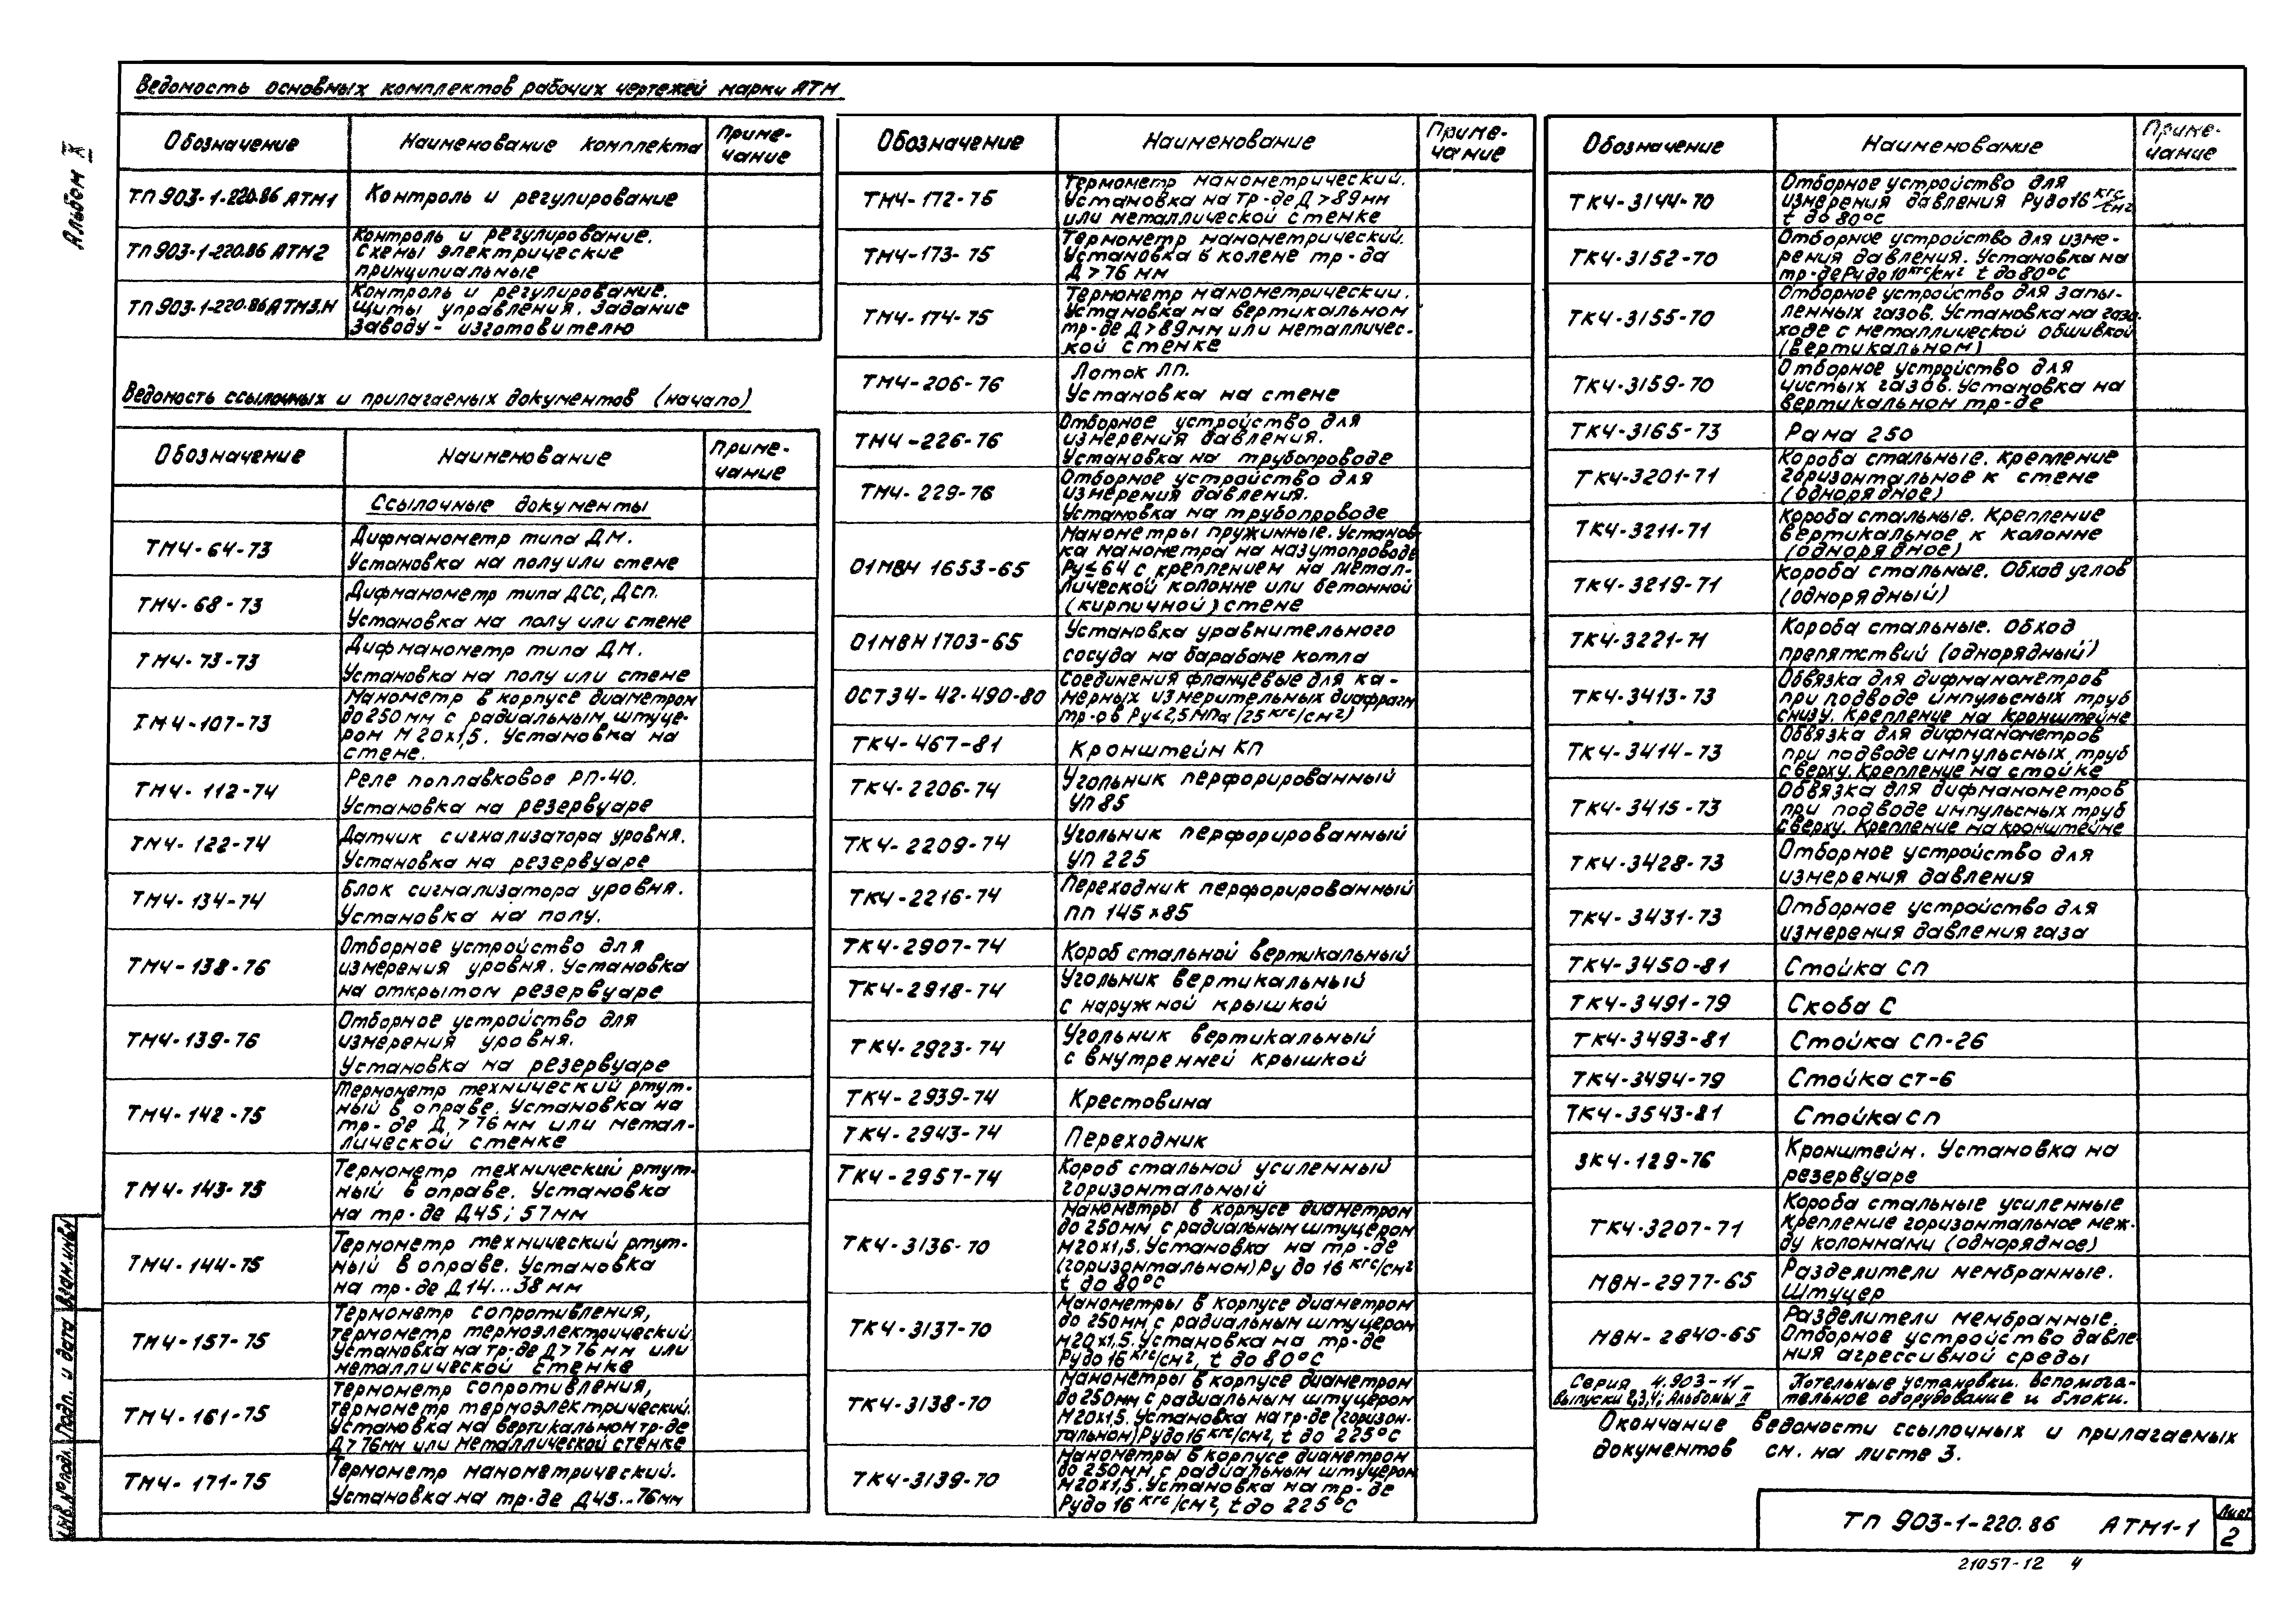 Альбом X
Ведомость основных комплектов рабочих чертежей марки АТМ
Обозначение
Наименование комплекта
Приме-
чание
ТП 903-1-220.86 АТМ1
Контроль и регулирование
ТП 903-1-220.86 АТМ2
Контроль и регулирование.
Схемы электрические
принципиальные
ТП 903-1-220.86 АТМ3.Н
Контроль и регулирование.
Щиты управления. Задание
заводу - изготовителю
Ведомость ссылочных и прилагаемых документов (начало)
Обозначение
Наименование
Приме-
чание
Ссылочные документы
ТМЧ-64-73
Дифманометр типа ДМ.
Установка на полу или стене
ТМЧ-68-73
Дифманометр типа ДСС, ДСП.
Установка на полу или стене
ТМЧ-73-73
Дифманометр типа ДМ.
Установка на полу или стене
ТМЧ-107-73
Манометр в корпусе диаметром
до 250мм с радиальным штуце-
ром М20х1,5. Установка на
стене.
ТМЧ-112-74
Реле поплавковое РП-40.
Установка на резервуаре
ТМЧ-122-74
Датчик сигнализатора уровня.
Установка на резервуаре
ТМЧ-134-74
Блок сигнализатора уровня.
Установка на полу.
ТМЧ-138-76
Отборное устройство для
измерения уровня. Установка
на открытом резервуаре
ТМЧ-139-76
Отборное устройство для
измерения уровня.
Установка на резервуаре
ТМЧ-142-75
Термометр технический ртут-
ный в оправе. Установка на
тр-де Д > 76мм или метал-
лической стенке
ТМЧ-143-75
Термометр технический ртут-
ный в оправе. Установка
на тр-де Д45; 57мм
ТМЧ-144-75
Термометр технический ртут-
ный в оправе. Установка
на тр-де Д14...38мм
ТМЧ-157-75
Термометр сопротивления,
термометр термоэлектрический
Установка на тр-де Д > 76мм или
металлической стенке
ТМЧ-161-75
Термометр сопротивления,
термометр термоэлектрический.
Установка на вертикальном тр-де
Д > 76мм или металлической стенке
ТМЧ-171-75
Термометр манометрический.
Установка на тр-де Д45...76мм
Обозначение
Наименование
Приме-
чание
ТМЧ-172-75
Термометр манометрический.
Установка на тр-де Д > 89мм
или металлической стенке
ТМЧ-173-75
Термометр манометрический.
Установка в колене тр-да
Д > 76 мм
ТМЧ-174-75
Термометр манометрический.
Установка на вертикальном
тр-де Д > 89мм или металличес-
кой стенке
ТМЧ-206-76
Лоток ЛП.
Установка на стене
ТМЧ-226-76
Отборное устройство для
измерения давления.
Установка на трубопроводе
ТМЧ-229-76
Отборное устройство для
измерения давления.
Установка на трубопроводе
01МВН 1653-65
Манометры пружинные. Установ-
ка манометра на мазутопроводе
Ру≤64 с креплением на метал-
лической колонне или бетонной
(кирпичной) стене
01МВН 1703-65
Установка уравнительного
сосуда на барабане котла
ОСТ34-42-490-80
Соединения фланцевые для ка-
мерных измерительных диафрагм
тр-ов Ру<2,5МПа (25 кгс/см²)
ТКЧ-467-81
Кронштейн КП
ТКЧ-2206-74
Угольник перфорированный
УП 85
ТКЧ-2209-74
Угольник перфорированный
УП 225
ТКЧ-2216-74
Переходник перфорированный
ПП 145х85
ТКЧ-2907-74
Короб стальной вертикальный
ТКЧ-2918-74
Угольник вертикальный
с наружной крышкой
ТКЧ-2923-74
Угольник вертикальный
с внутренней крышкой
ТКЧ-2939-74
Крестовина
ТКЧ-2943-74
Переходник
ТКЧ-2957-74
Короб стальной усиленный
горизонтальный
ТКЧ-3136-70
Манометры в корпусе диаметром
до 250мм с радиальным штуцером
М20х1,5. Установка на тр-де
(горизонтальном) Ру до 16 кгс/см²
t до 80°С
ТКЧ-3137-70
Манометры в корпусе диаметром
до 250мм с радиальным штуцером
М20х1,5. Установка на тр-де
Ру до 16 кгс/см², t до 80°С
ТКЧ-3138-70
Манометры в корпусе диаметром
до 250мм с радиальным штуцером
М20х1,5. Установка на тр-де (горизон-
тальном) Ру до 16 кгс/см², t до 225°С
ТКЧ-3139-70
Манометры в корпусе диаметром
до 250мм с радиальным штуцером
М20х1,5. Установка на тр-де
Ру до 16 кгс/см², t до 225°С
Обозначение
Наименование
Приме-
чание
ТКЧ-3144-70
Отборное устройство для
измерения давления Ру до 16 кгс/см²
t до 80°С
ТКЧ-3152-70
Отборное устройство для изме-
рения давления. Установка на
тр-де Ру до 10 кгс/см² t до 80°С
ТКЧ-3155-70
Отборное устройство для запы-
ленных газов. Установка на газо-
ходе с металлической обшивкой
(вертикальном)
ТКЧ-3159-70
Отборное устройство для
чистых газов. Установка на
вертикальном тр-де
ТКЧ-3165-73
Рама 250
ТКЧ-3201-71
Короба стальные. Крепление
горизонтальное к стене
(однорядное)
ТКЧ-3211-71
Короба стальные. Крепление
вертикальное к колонне
(однорядное)
ТКЧ-3219-71
Короба стальные. Обход углов
(однорядный)
ТКЧ-3221-71
Короба стальные. Обход
препятствий (однорядный)
ТКЧ-3413-73
Обвязка для дифманометров
при подводе импульсных труб
снизу. Крепление на кронштейне
ТКЧ-3414-73
Обвязка для дифманометров
при подводе импульсных труб
сверху. Крепление на стойке
ТКЧ-3415-73
Обвязка для дифманометров
при подводе импульсных труб
сверху. Крепление на кронштейне
ТКЧ-3428-73
Отборное устройство для
измерения давления
ТКЧ-3431-73
Отборное устройство для
измерения давления газа
ТКЧ-3450-81
Стойка СП
ТКЧ-3491-79
Скоба С
ТКЧ-3493-81
Стойка СП-26
ТКЧ-3494-79
Стойка СТ-6
ТКЧ-3543-81
Стойка СП
ЗКЧ-129-76
Кронштейн. Установка на
резервуаре
ТКЧ-3207-71
Короба стальные усиленные
крепление горизонтальное меж-
ду колоннами (однорядное)
МВН-2977-65
Разделители мембранные.
Штуцер
МВН-2840-65
Разделители мембранные.
Отборное устройство давле
ния агрессивной среды
Серия 4.903-11
Выпуски 2,3,4; Альбомы II
Котельные установки. Вспомога-
тельное оборудование и блоки.
Окончание ведомости ссылочных и прилагаемых
документов см. на листе 3.
Инв.№ подл.
Подп. и дата
Взам.инв№
ТП 903-1-220.86 АТМ1-1
Лист
2
21057-12 4